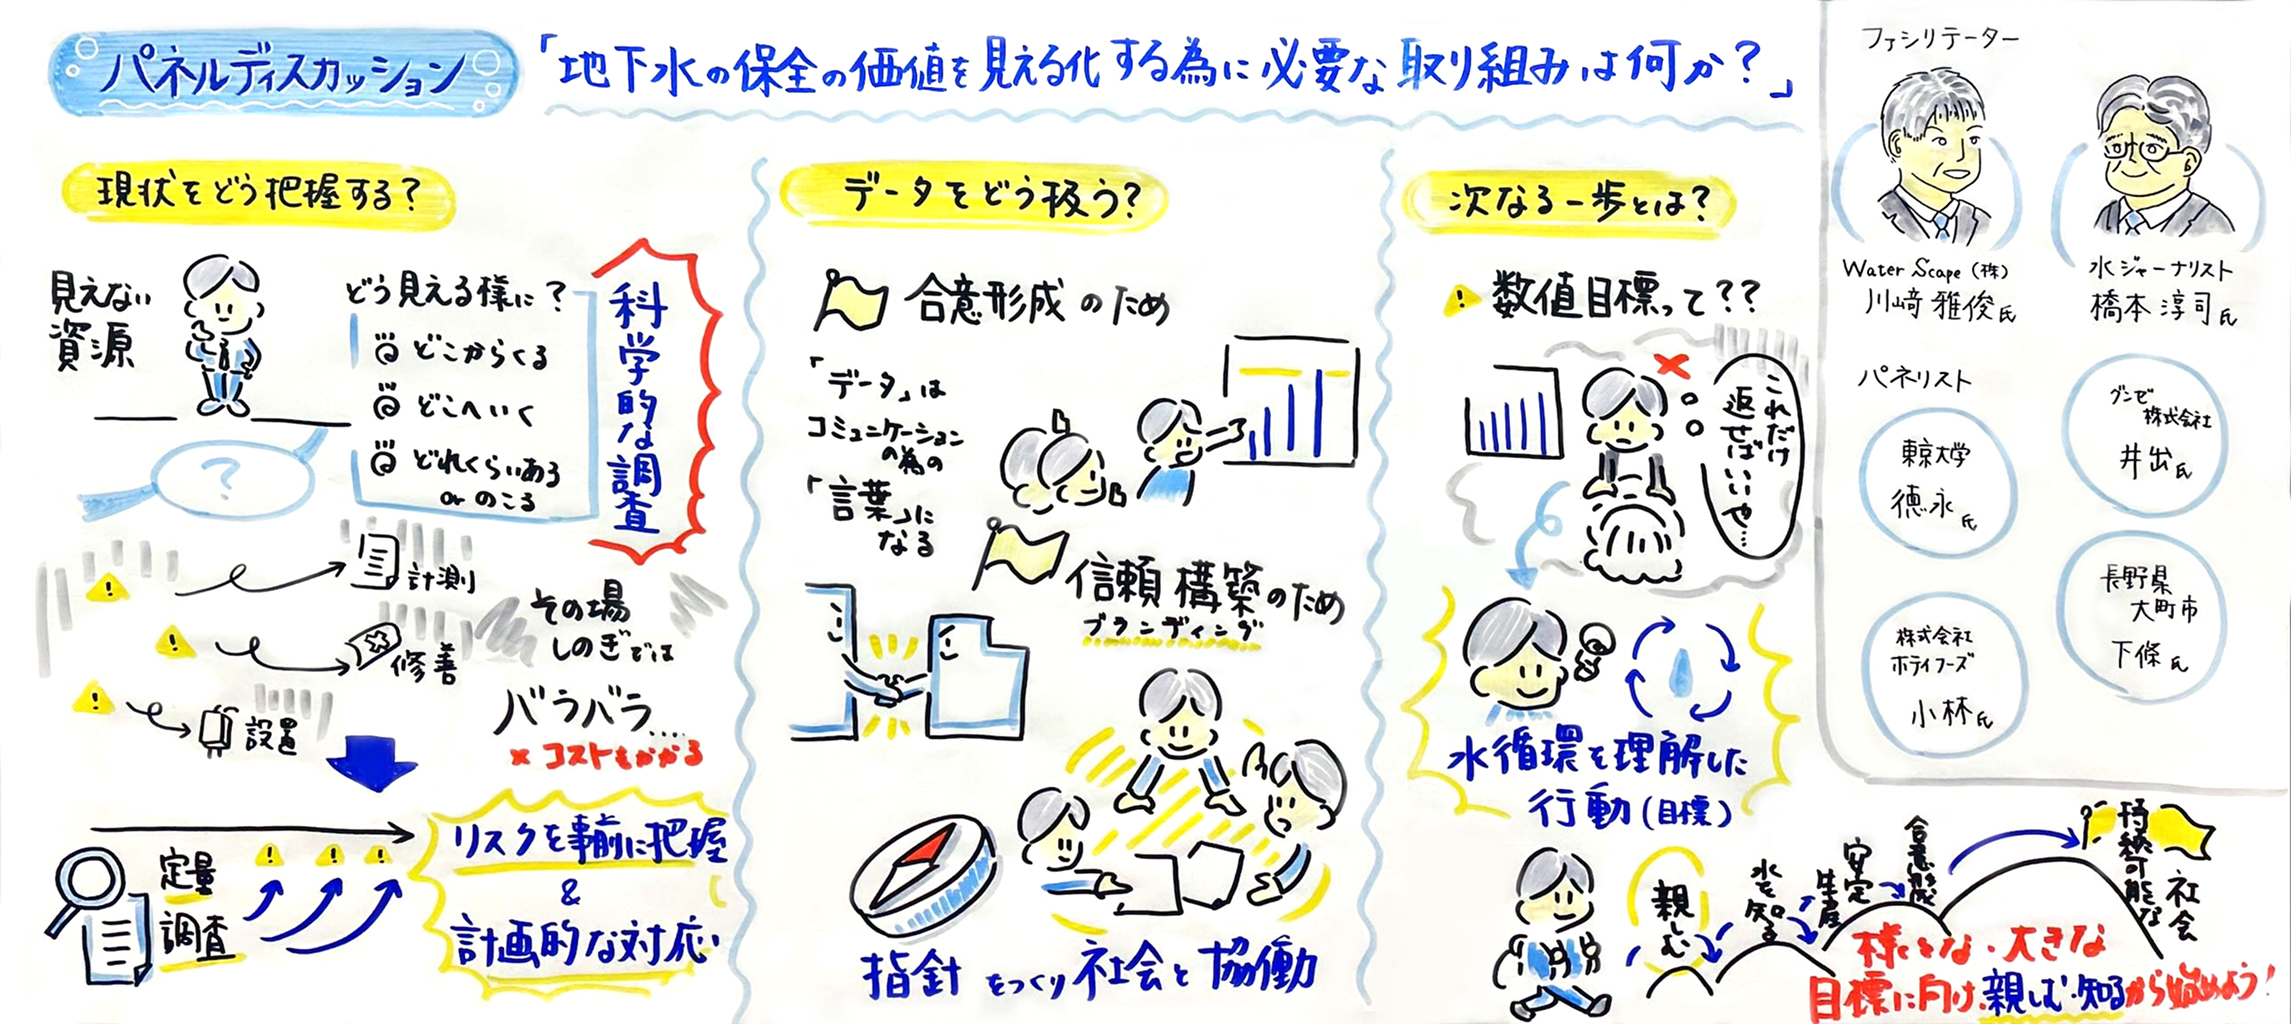 パネルディスカッション
「地下水の保全の価値を見える化する為に必要な取り組みは何か？」
現状をどう把握する？
見えない
資源
？
どう見える様に？
どこからくる
どこへいく
どれくらいある
or のこる
科学的な調査
!
計測
!
修善
!
設置
その場
しのぎでは
バラバラ....
×コストもかかる
定量
調査
! ! !
リスクを事前に把握
&
計画的な対応
データをどう扱う？
合意形成のため
「データ」は
コミュニケーション
の為の
「言葉」に
なる
信頼構築のため
ブランディング
指針をつくり社会と協働
次なる一歩とは？
! 数値目標って？？
これだけ
返せば
いいや…
水循環を理解した
行動（目標）
親しむ
水を知る
安定
生産
合意形成
持続可能な
社会
様々な・大きな
目標に向け、親しむ・知るから始めよう！
ファシリテーター
Water Scape（株）
川﨑 雅俊氏
水ジャーナリスト
橋本 淳司氏
パネリスト
東京大学
徳永氏
グンゼ
株式会社
井出氏
株式会社
ホテイフーズ
小林氏
長野県
大町市
下條氏